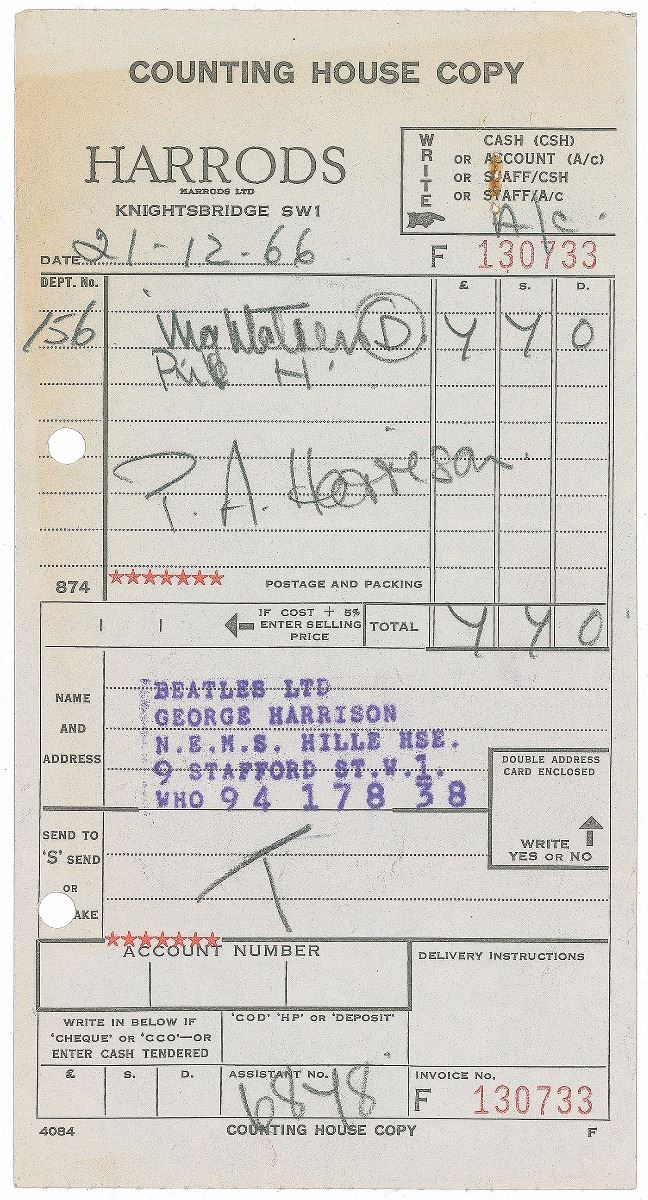 COUNTING HOUSE COPY
HARRODS
HARRODS LTD
KNIGHTSBRIDGE SW1
WRITE
CASH (CSH)
OR ACCOUNT (A/c)
OR STAFF/CSH
OR STAFF/A/c
A/c.
DATE 21-12-66
F 130733
DEPT. No. £ S. D.
156 D 4 4 0
H.
P. A. Harrison.
874 ★★★★★★★ POSTAGE AND PACKING
IF COST + 5%
ENTER SELLING
PRICE
TOTAL 4 4 0
NAME
AND
ADDRESS
BEATLES LTD
GEORGE HARRISON
N.E.M.S. HILLE HSE.
9 STAFFORD ST.W.1.
WHO 94 178 38
DOUBLE ADDRESS
CARD ENCLOSED
WRITE
YES OR NO
SEND TO
'S' SEND
OR
AKE
T
★★★★★★★
ACCOUNT NUMBER
DELIVERY INSTRUCTIONS
WRITE IN BELOW IF
'CHEQUE' OR 'CCO'—OR
ENTER CASH TENDERED
'COD' 'HP' OR 'DEPOSIT'
£ S. D.
ASSISTANT No.
6848
INVOICE No.
F 130733
4084 COUNTING HOUSE COPY F